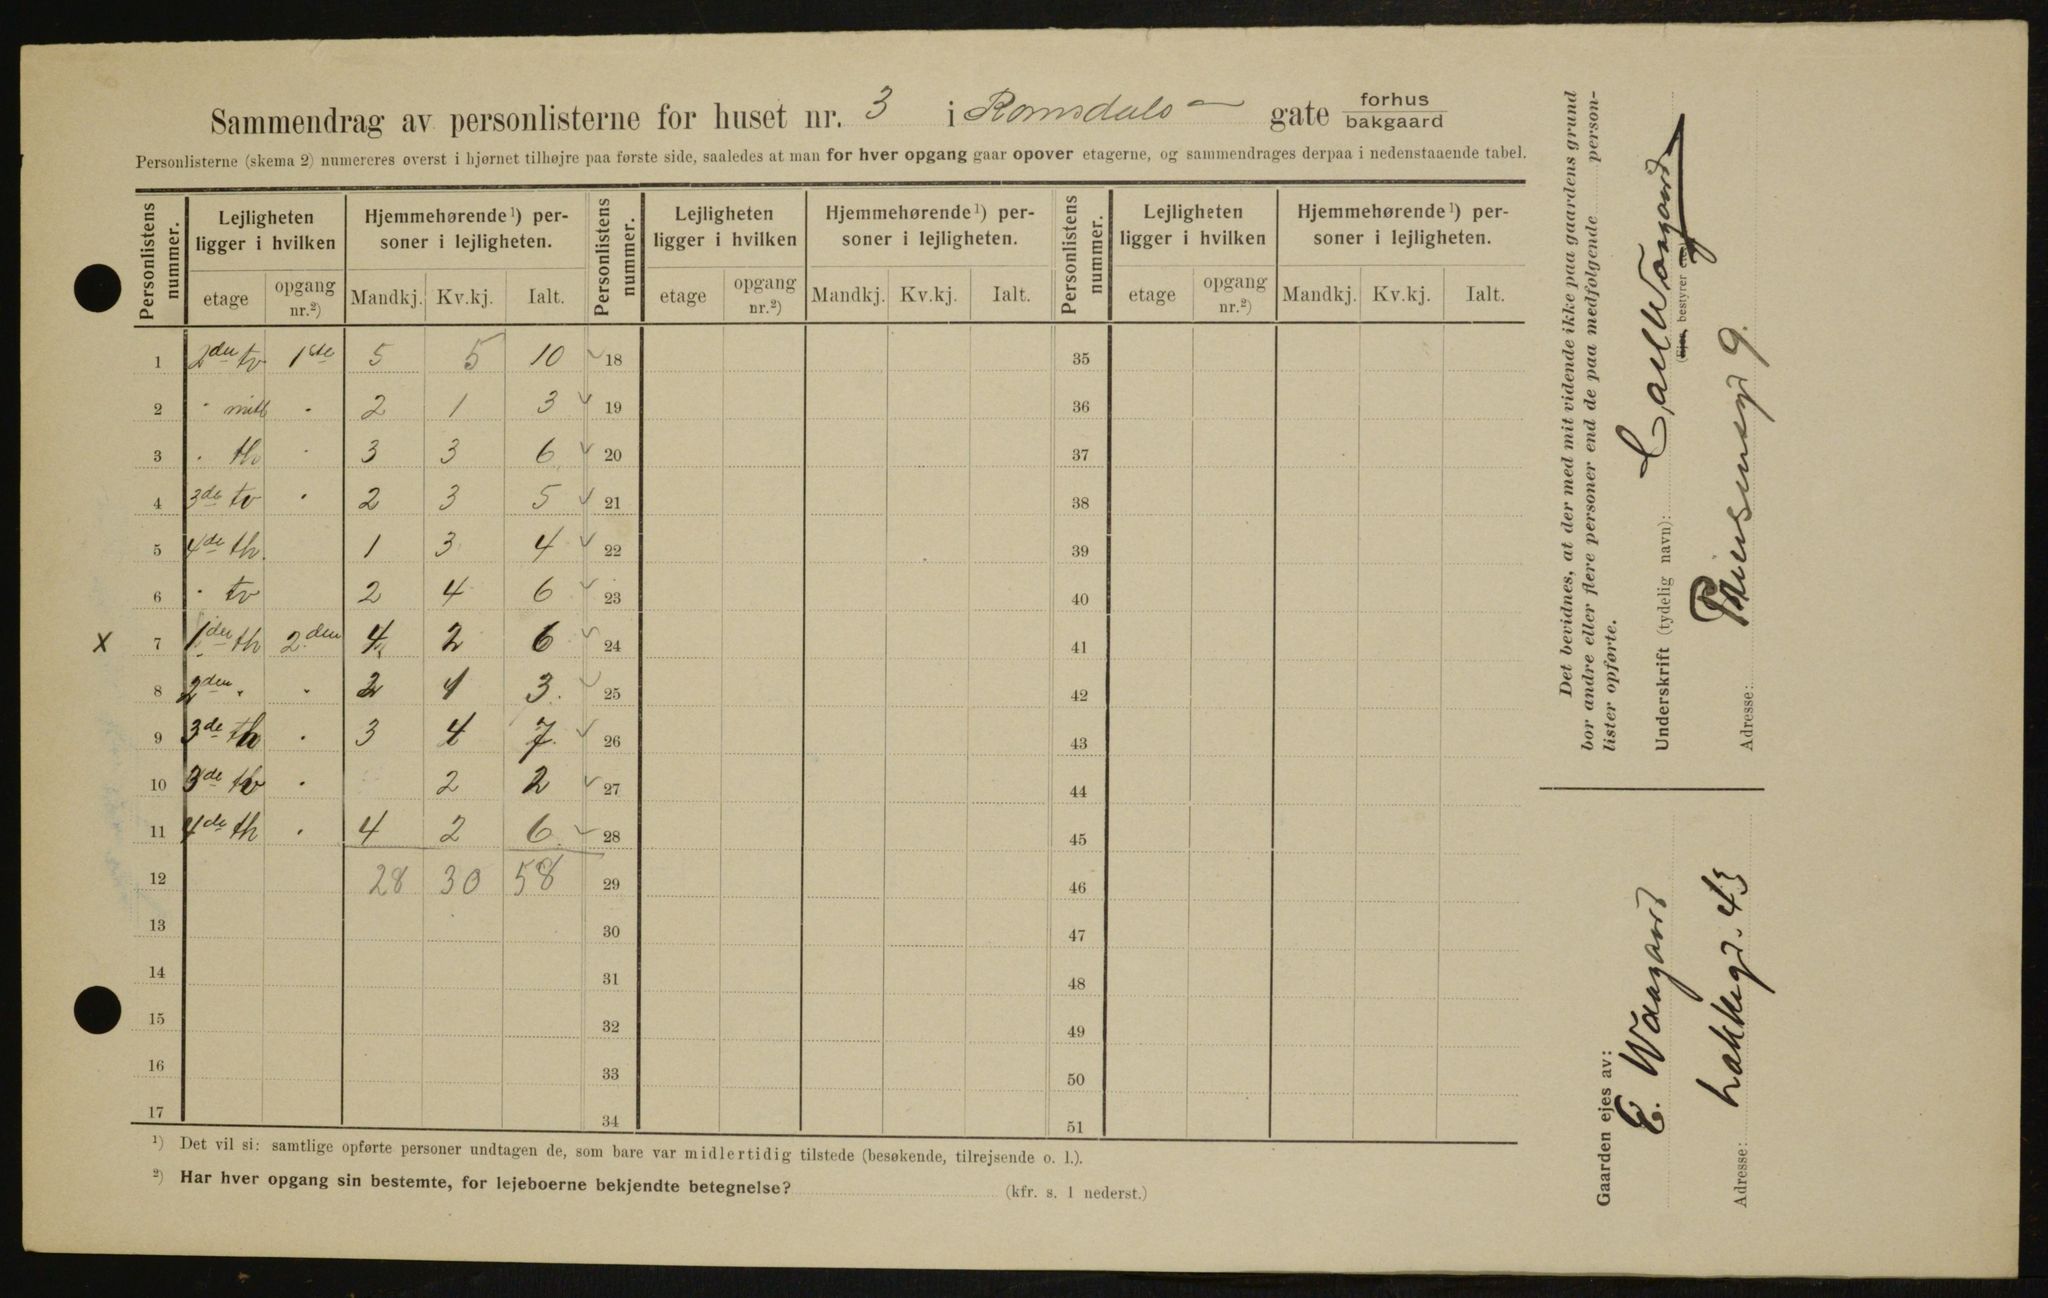 Sammendrag av personlisterne for huset nr. 3 i Romsdals gate forhus bakgaard
Personlisterne (skema 2) numereres øverst i hjørnet tilhøjre paa første side, saaledes at man for hver opgang gaar opover etagerne, og sammendrages derpaa i nedenstaaende tabel.
Personlistens nummer. Lejligheten ligger i hvilken Hjemmehørende¹) personer i lejligheten. Personlistens nummer. Lejligheten ligger i hvilken Hjemmehørende¹) personer i lejligheten. Personlistens nummer. Lejligheten ligger i hvilken Hjemmehørende¹) personer i lejligheten.
etage opgang nr.²) Mandkj. Kv.kj. Ialt. etage opgang nr.²) Mandkj. Kv.kj. Ialt. etage opgang nr.²) Mandkj. Kv.kj. Ialt.
1 2den tv 1ste 5 5 10 ✓ 18 35
2 " midt " 2 1 3 ✓ 19 36
3 " th " 3 3 6 ✓ 20 37
4 3de tv " 2 3 5 ✓ 21 38
5 4de th. 1 3 4 ✓ 22 39
6 " tv 2 4 6 ✓ 23 40
x 7 1den th 2.den 4 2 6 ✓ 24 41
8 2den " " 2 1 3. ✓ 25 42
9 3de th " 3 4 7. ✓ 26 43
10 3de tv " 2 2 ✓ 27 44
11 4de th " 4 2 6. ✓ 28 45
12 28 30 58 29 46
13 30 47
14 31 48
15 32 49
16 33 50
17 34 51
¹) Det vil si: samtlige opførte personer undtagen de, som bare var midlertidig tilstede (besøkende, tilrejsende o. l.).
²) Har hver opgang sin bestemte, for lejeboerne bekjendte betegnelse? (kfr. s. 1 nederst.)
Det bevidnes, at der med mit vidende ikke paa gaardens grund
bor andre eller flere personer end de paa medfølgende person-
lister opførte.
Underskrift (tydelig navn): Carl Waagaard
(Ejer, bestyrer etc.)
Adresse: 9.
Gaarden ejes av:
E. Waagaard
Adresse: Lakkegd. 43